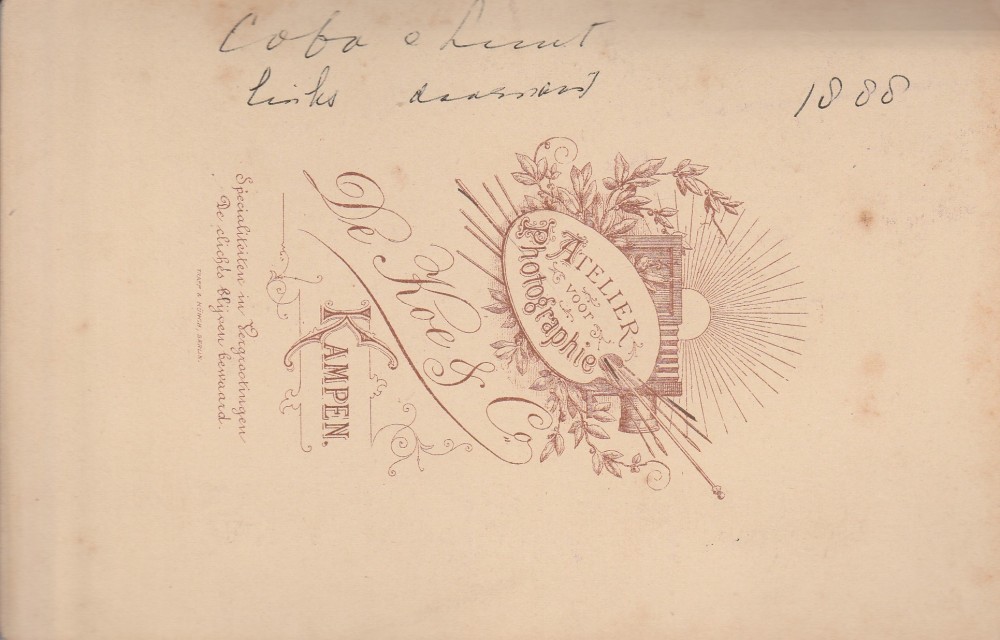 Coba
links
1888
ATELIER
voor
Photographie
De Koe & Co
KAMPEN.
Specialiteiten in Vergrootingen
De clichés blijven bewaard.